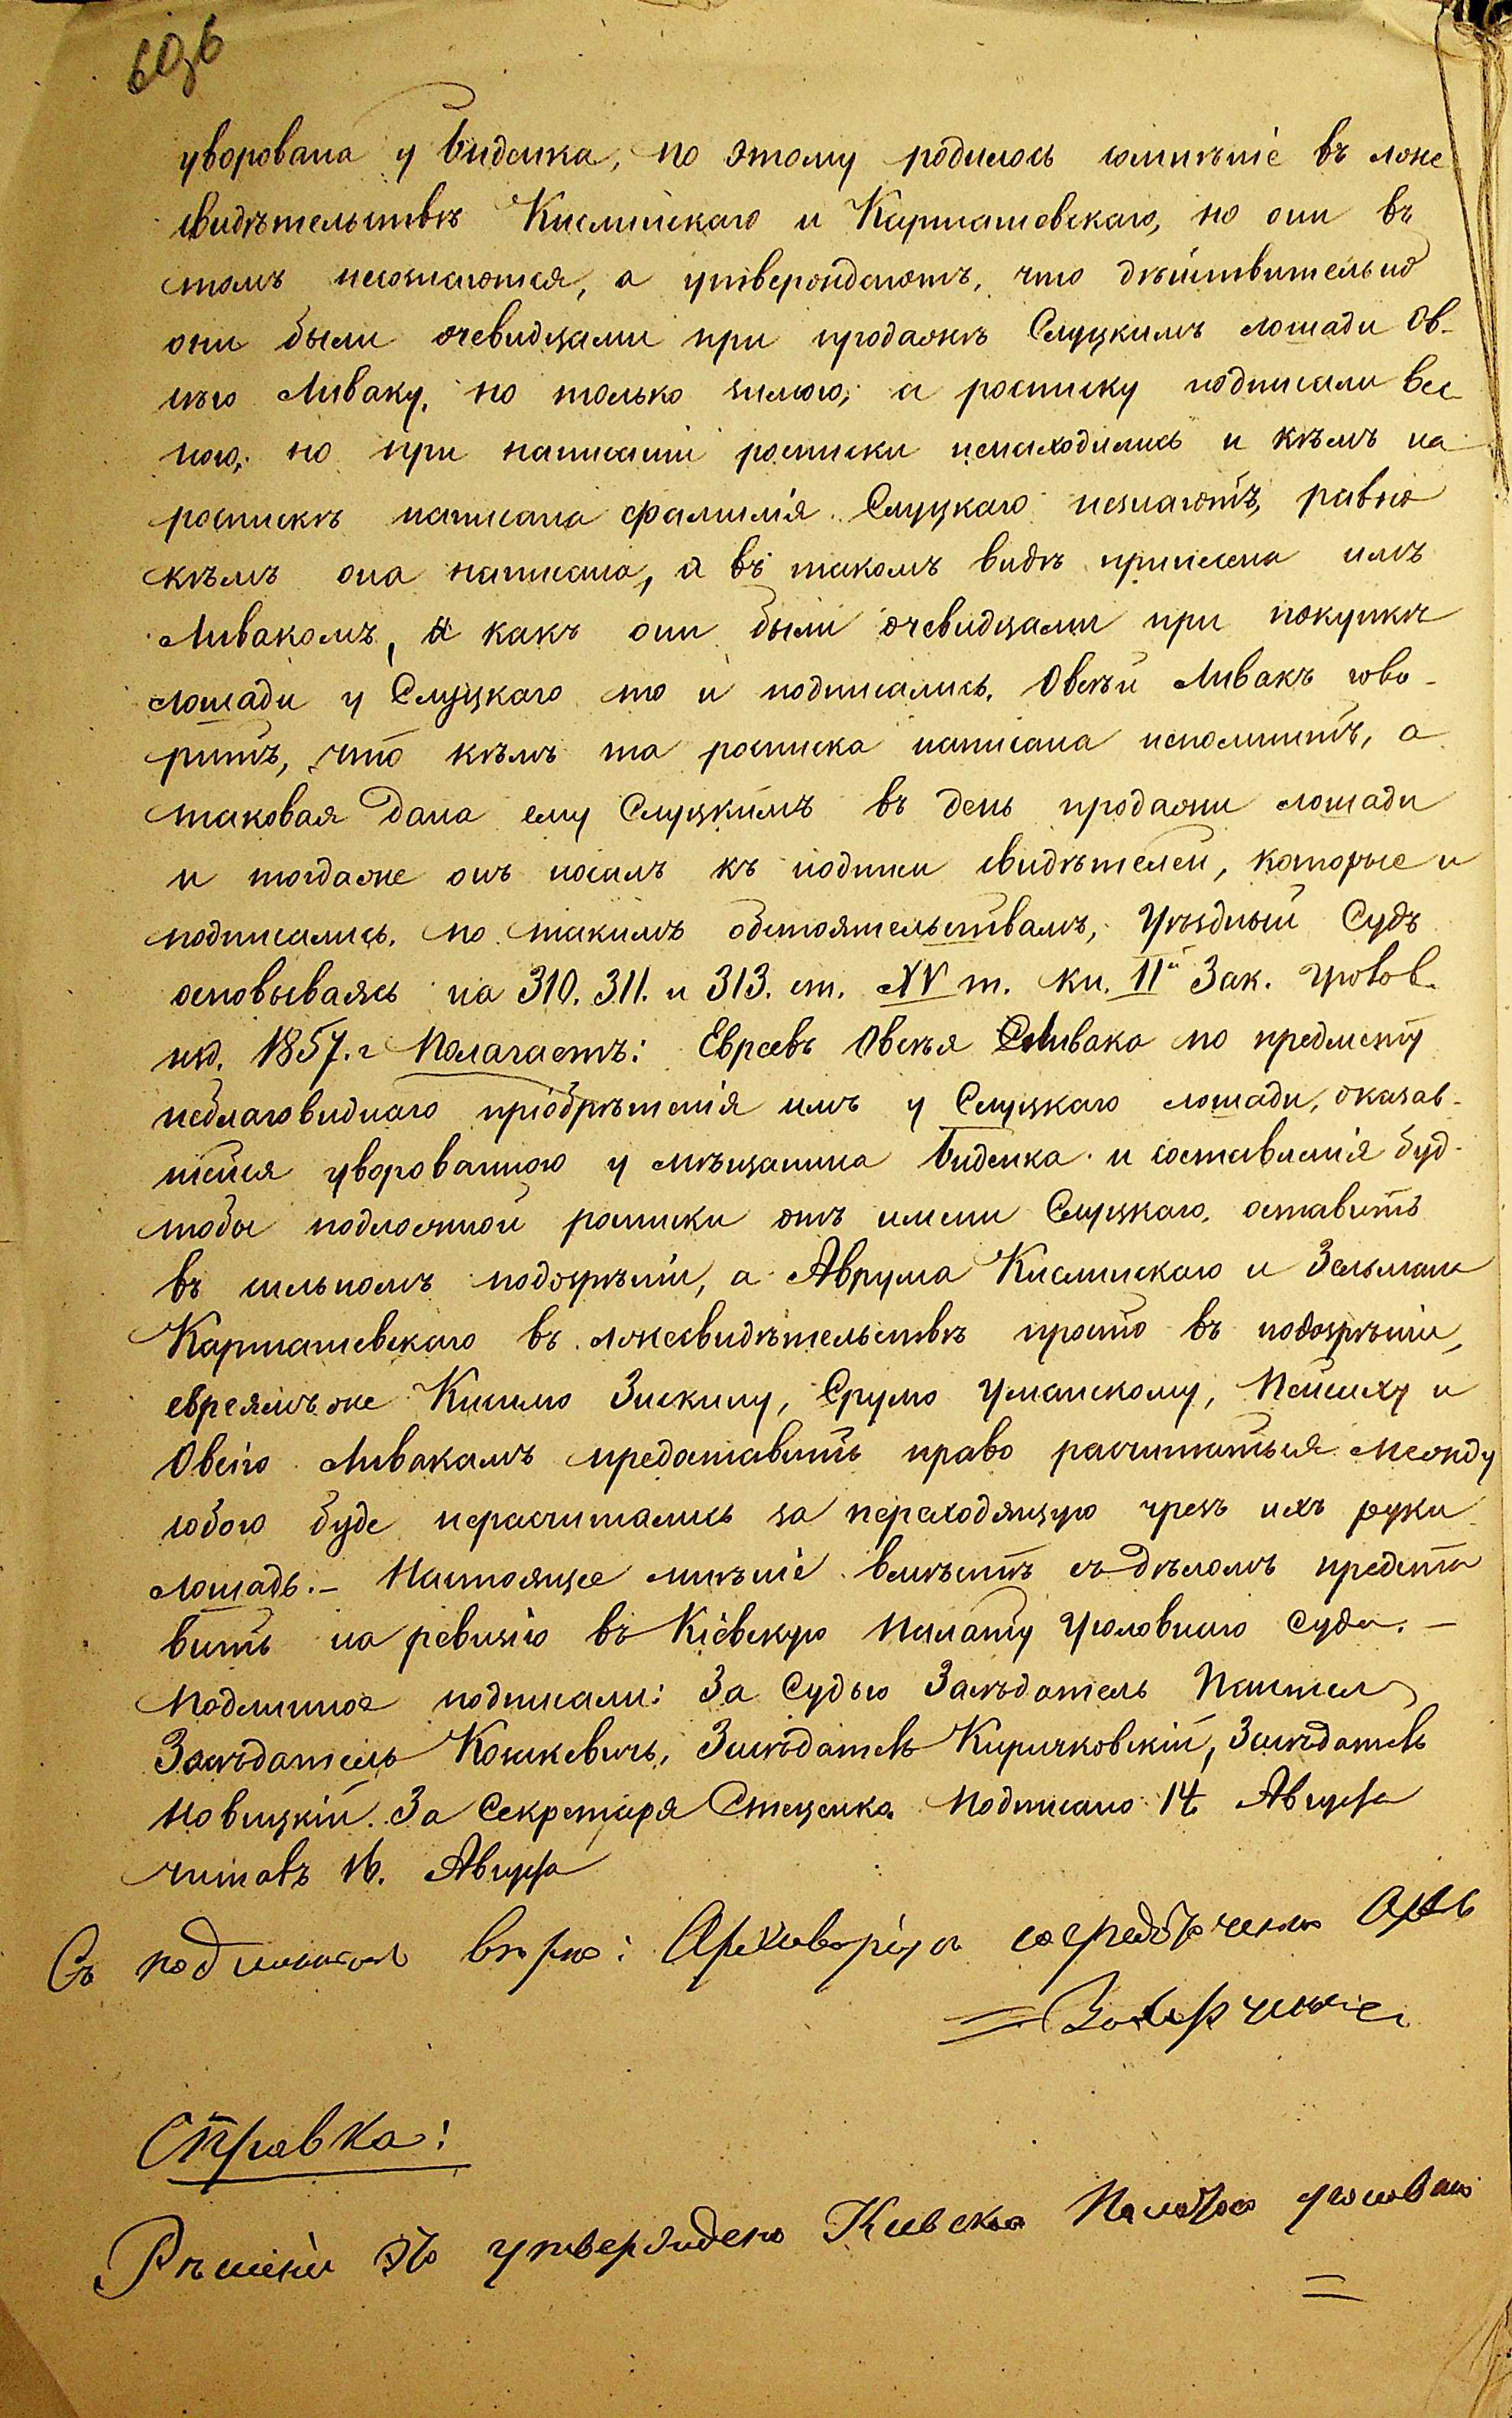 уворована у Биденка, по этому родилось сомнѣніе въ лже
свидѣтельствѣ Кислинскаго и Карташевскаго, но они въ
томъ несознаются, а утверждаютъ, что дѣйствительно
они были очевидцами при продажѣ Слуцкимъ лошади Ов-
сѣю Ливаку, но только зимою, а росписку подписали вес-
ною, но при написаніи росписки ненаходились и кѣмъ на
роспискѣ написана фамилія Слуцкаго незнаютъ, равно
кѣмъ она написана, а въ такомъ видѣ принесена имъ
Ливакомъ, и какъ они были очевидцами при покупкѣ
лошади у Слуцкаго то и подписались. Овсѣй Ливакъ гово-
ритъ, что кѣмъ та росписка написана непомнитъ, а
таковая дана ему Слуцкимъ въ день продажи лошади
и тогдаже онъ носилъ къ подписи свидѣтелей, которые и
подписались. По такимъ обстоятельствамъ, Уѣздный Судъ
основываясь на 310. 311. и 313. ст. XV т. кн. II<sup>й</sup> Зак. Уголов.
изд. 1857. г. Полагаетъ: Евреевъ Овсѣя Ливака по предмету
неблаговиднаго пріобрѣтенія имъ у Слуцкаго лошади, оказав-
шейся уворованною у мѣщанина Биденка и составленія буд-
тобы подложной росписки отъ имени Слуцкаго, оставить
въ сильномъ подозрѣніи, а Аврума Кислинскаго и Зельмана
Карташевскаго въ лжесвидѣтельствѣ просто въ подозрѣніи,
евреямъ же Кисилю Зискину, Срулю Уманскому, Пейсиху и
Овсѣю Ливакамъ предоставить право расчитаться между
собою буде нерасчитались за переходящую чрезъ ихъ руки
лошадь.- Настоящее мнѣніе вмѣстѣ съ дѣломъ предста
вить на ревизію въ Кіевскую Палату Уголовнаго Суда. -
Подлинное подписали: За Судью Засѣдатель
Засѣдатель Кошкевичъ, Засѣдатель Киричковскій, Засѣдатель
Новицкій. За Секретаря Стеценка Подписано 14 Августа
читалъ 16. Августа
Съ подлиннымъ вѣрно: Архиваріусъ
Справка:
Рѣшеніе это утверждено Кіевскою Палатою уголовнаго